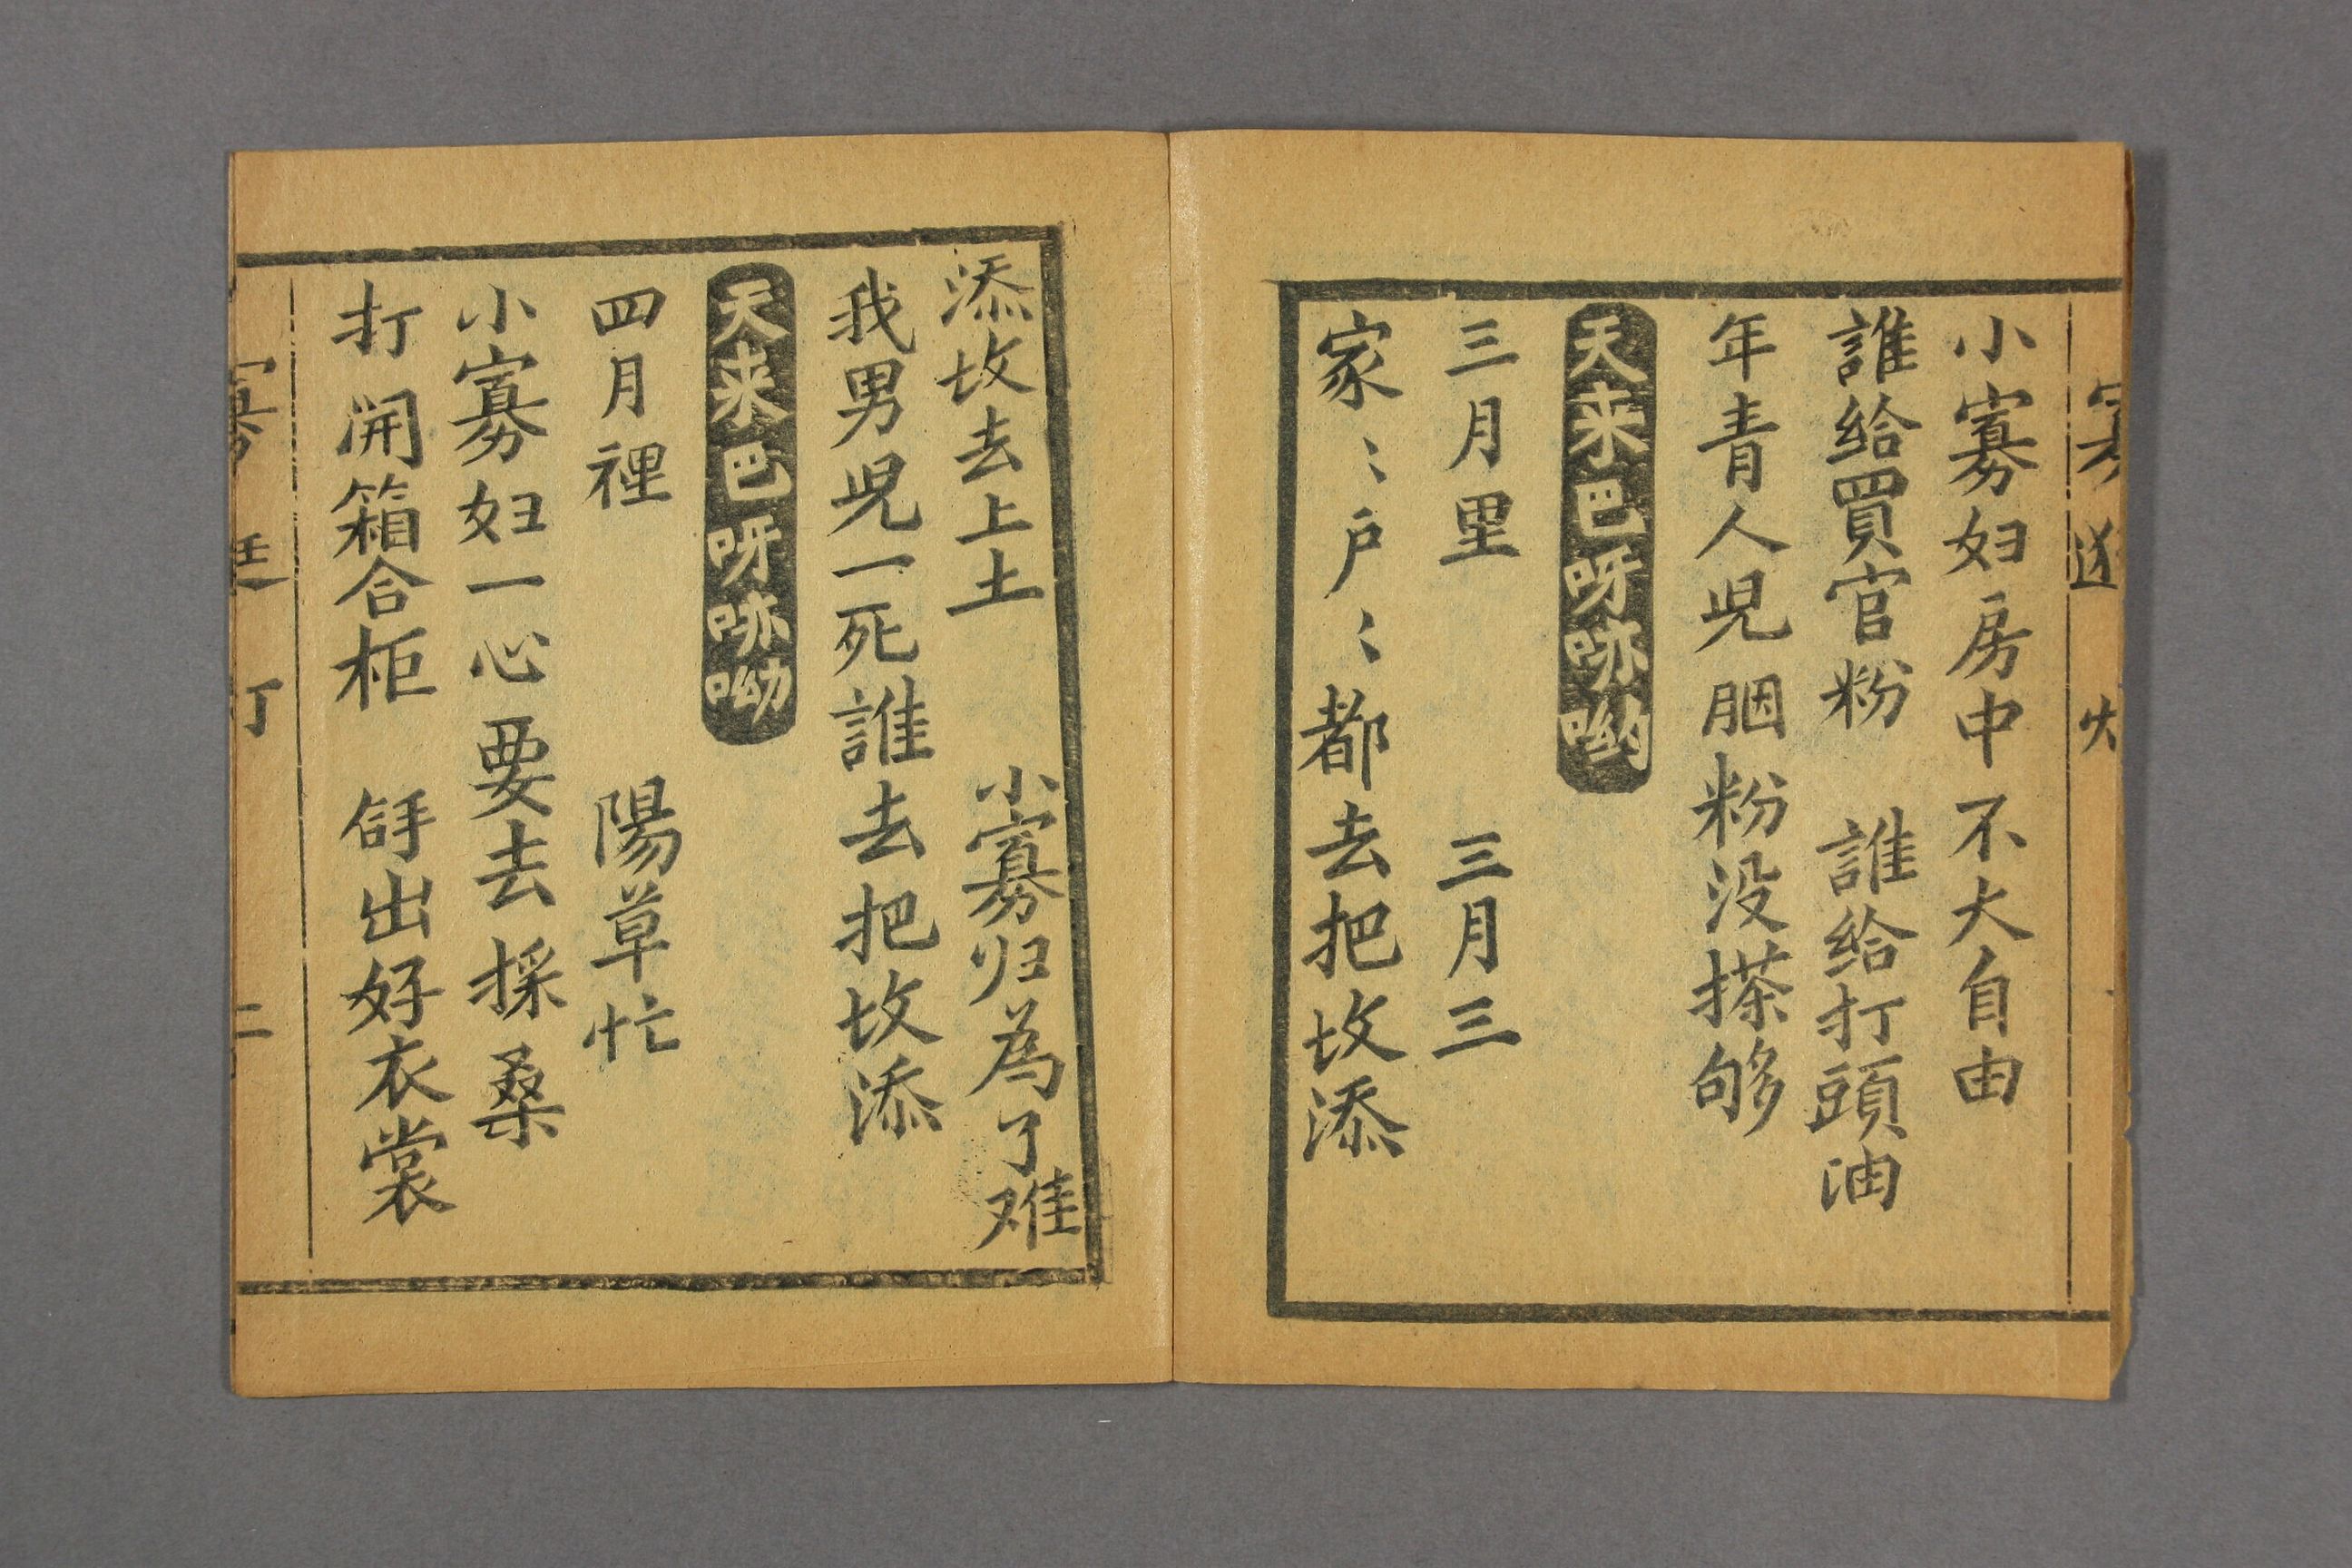 小寡妇房中不大自由
誰給買官粉　誰給打頭油
年青人児胭粉没搽够
天来巴呀咴呦
三月里　三月三
家〻户〻都去把坟添
添坟去上土　小寡归為了难
我男児一死誰去把坟添
天来巴呀咴呦
四月裡　陽草忙
小寡妇一心要去採桑
打開箱合柜　㪗出好衣裳
二